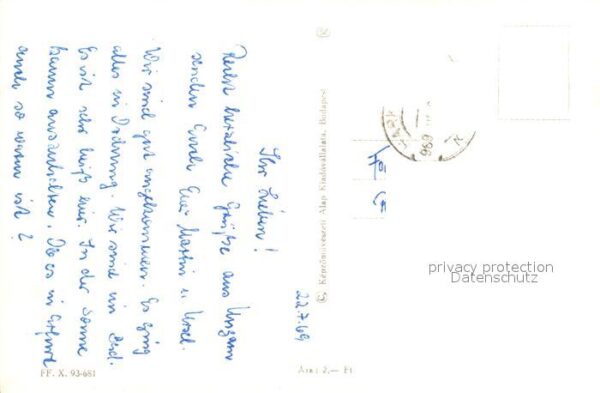 22.7.69
Ihr Lieben!
Recht herzliche Grüße aus Ungarn
senden Euch Eure Martin u. Ursel.
Wir sind gut angekommen. Es ging
alles in Ordnung. Wir sind im
Es ist sehr heiß hier. In der Sonne
kaum auszuhalten. Ob es in Erfurt
auch so warm ist?
FF. X. 93-681
© Képzőművészeti Alap Kiadóvállalata, Budapest
Ára: 2,— Ft
969
privacy protection
Datenschutz